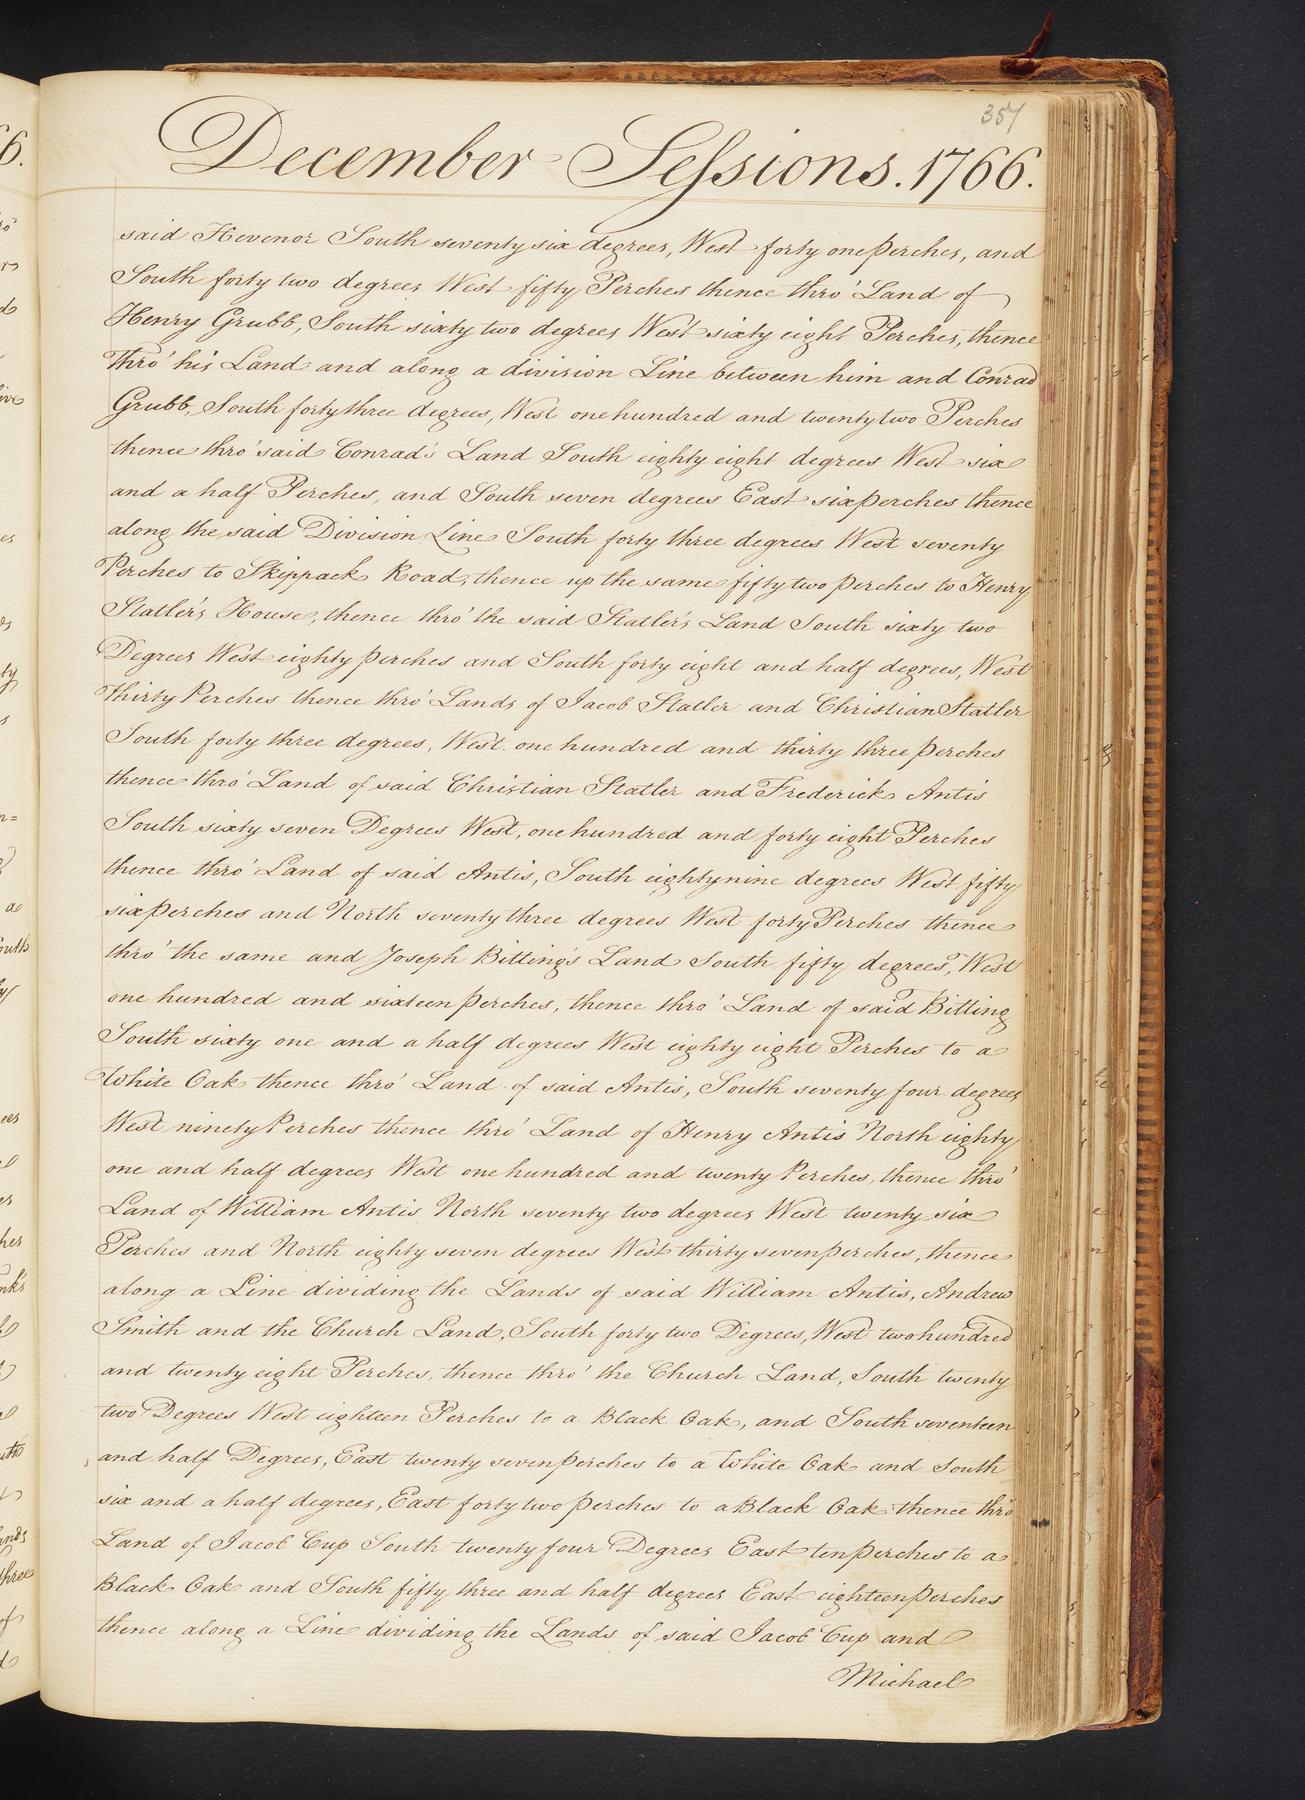 357
December Sessions. 1766.
said Hevenor South seventy six degrees, West forty one perches, and
South forty two degrees West fifty Perches thence thro' Land of
Henry Grubb, South sixty two degrees West sixty eight Perches, thence
thro' his Land and along a division Line between him and Conrad
Grubb, South forty three degrees, West one hundred and twenty two Perches
thence thro' said Conrad's Land South eighty eight degrees West six
and a half Perches, and South seven degrees East six perches thence
along the said Division Line South forty three degrees West seventy
Perches to Skippack Road, thence up the same fifty two perches to Henry
Statler's House, thence thro' the said Statler's Land South sixty two
Degrees West eighty perches and South forty eight and half degrees, West
thirty Perches thence thro' Lands of Jacob Statler and Christian Statler
South forty three degrees, West one hundred and thirty three perches
thence thro' Land of said Christian Statler and Frederick Antis
South sixty seven Degrees West, one hundred and forty eight Perches
thence thro' Land of said Antis, South eighty nine degrees West fifty
six perches and North seventy three degrees West forty Perches thence
thro' the same and Joseph Bitting's Land South fifty degrees, West
one hundred and sixteen perches, thence thro' Land of said Bitting
South sixty one and a half degrees West eighty eight Perches to a
White Oak thence thro' Land of said Antis, South seventy four degrees
West ninety Perches thence thro' Land of Henry Antis North eighty
one and half degrees West one hundred and twenty Perches, thence thro'
Land of William Antis North seventy two degrees West twenty six
Perches and North eighty seven degrees West thirty seven perches, thence
along a Line dividing the Lands of said William Antis, Andrew
Smith and the Church Land, South forty two Degrees, West two hundred
and twenty eight Perches, thence thro' the Church Land, South twenty
two Degrees West eighteen Perches to a Black Oak, and South seventeen
and half Degrees, East twenty seven perches to a White Oak and South
six and a half degrees, East forty two perches to a Black Oak thence thro'
Land of Jacob Cup South twenty four Degrees East ten perches to a
Black Oak and South fifty three and half degrees East eighteen perches
thence along a Line dividing the Lands of said Jacob Cup and
Michael